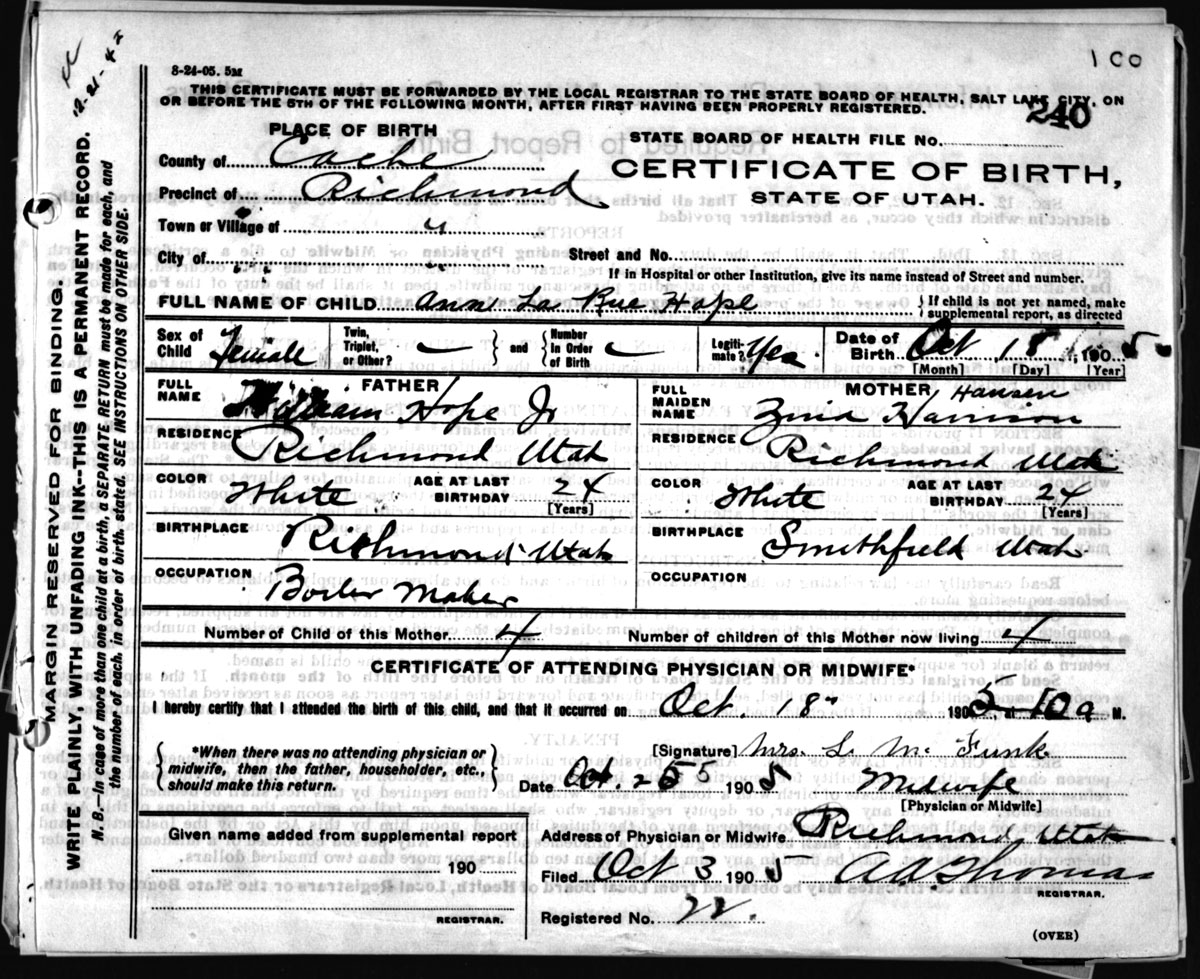 100
8-24-05. 5M
THIS CERTIFICATE MUST BE FORWARDED BY THE LOCAL REGISTRAR TO THE STATE BOARD OF HEALTH, SALT LAKE CITY, ON
OR BEFORE THE 5TH OF THE FOLLOWING MONTH, AFTER FIRST HAVING BEEN PROPERLY REGISTERED.
240
PLACE OF BIRTH
STATE BOARD OF HEALTH FILE No.
County of Cache
CERTIFICATE OF BIRTH,
Precinct of Richmond
STATE OF UTAH.
Town or Village of "
City of " " Street and No.
If in Hospital or other Institution, give its name instead of Street and number
FULL NAME OF CHILD Ann La Rue Hope { If child is not yet named, make supplemental report, as directed
Sex of Child Female Twin, Triplet, or Other? — } and { Number in Order of Birth — Legiti-mate? Yes. Date of Birth Oct 18 1905
[Month] [Day] [Year]
FATHER
FULL NAME William Hope Jr
RESIDENCE Richmond Utah
COLOR White AGE AT LAST BIRTHDAY 24
[Years]
BIRTHPLACE Richmond Utah
OCCUPATION Boiler Maker
MOTHER Hansen
FULL MAIDEN NAME Zina
RESIDENCE Richmond Utah
COLOR White AGE AT LAST BIRTHDAY 24
[Years]
BIRTHPLACE Smithfield Utah
OCCUPATION
Number of Child of this Mother 4 Number of children of this Mother now living 4
CERTIFICATE OF ATTENDING PHYSICIAN OR MIDWIFE*
I hereby certify that I attended the birth of this child, and that it occurred on Oct. 18 1905 10 a M.
{ *When there was no attending physician or midwife, then the father, householder, etc., should make this return. }
[Signature] Mrs. L. M. Funk
Date Oct 1905 Midwife
[Physician or Midwife]
Given name added from supplemental report
190
REGISTRAR.
Address of Physician or Midwife Richmond Utah
Filed Oct 3 1905 A.A. Thomas
REGISTRAR.
Registered No. 22
(OVER)
MARGIN RESERVED FOR BINDING.
WRITE PLAINLY, WITH UNFADING INK--THIS IS A PERMANENT RECORD.
N. B. In case of more than one child at a birth, a SEPARATE RETURN must be made for each, and
the number of each, in order of birth, stated. SEE INSTRUCTIONS ON OTHER SIDE.